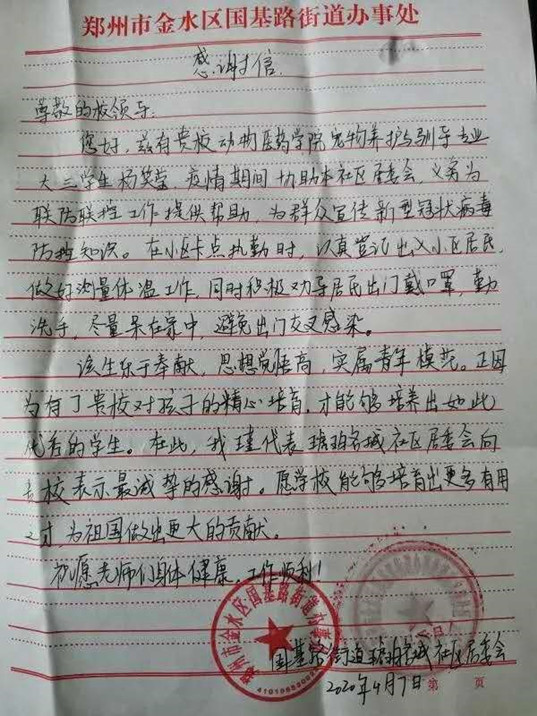 郑州市金水区国基路街道办事处
感谢信
尊敬的校领导:
您好,兹有贵校动物医药学院宠物养护与驯导专业
大三学生杨笑莹,疫情期间协助本社区居委会,义务为
联防联控工作提供帮助,为群众宣传新型冠状病毒
防控知识。在小区卡点执勤时,认真登记出入小区居民,
做好测量体温工作,同时积极劝导居民出门戴口罩,勤
洗手,尽量呆在家中,避免出门交叉感染。
该生乐于奉献,思想觉悟高,实属青年模范。正因
为有了贵校对孩子的精心培育,才能够培养出如此
优秀的学生。在此,我谨代表琥珀名城社区居委会向
贵校表示最诚挚的感谢。愿学校能够培育出更多有用
之才,为祖国做出更大的贡献。
祝愿老师们身体健康,工作顺利!
郑州市金水区国基路街道办事处
国基路街道琥珀名城社区居委会
2020年4月7日 第 页